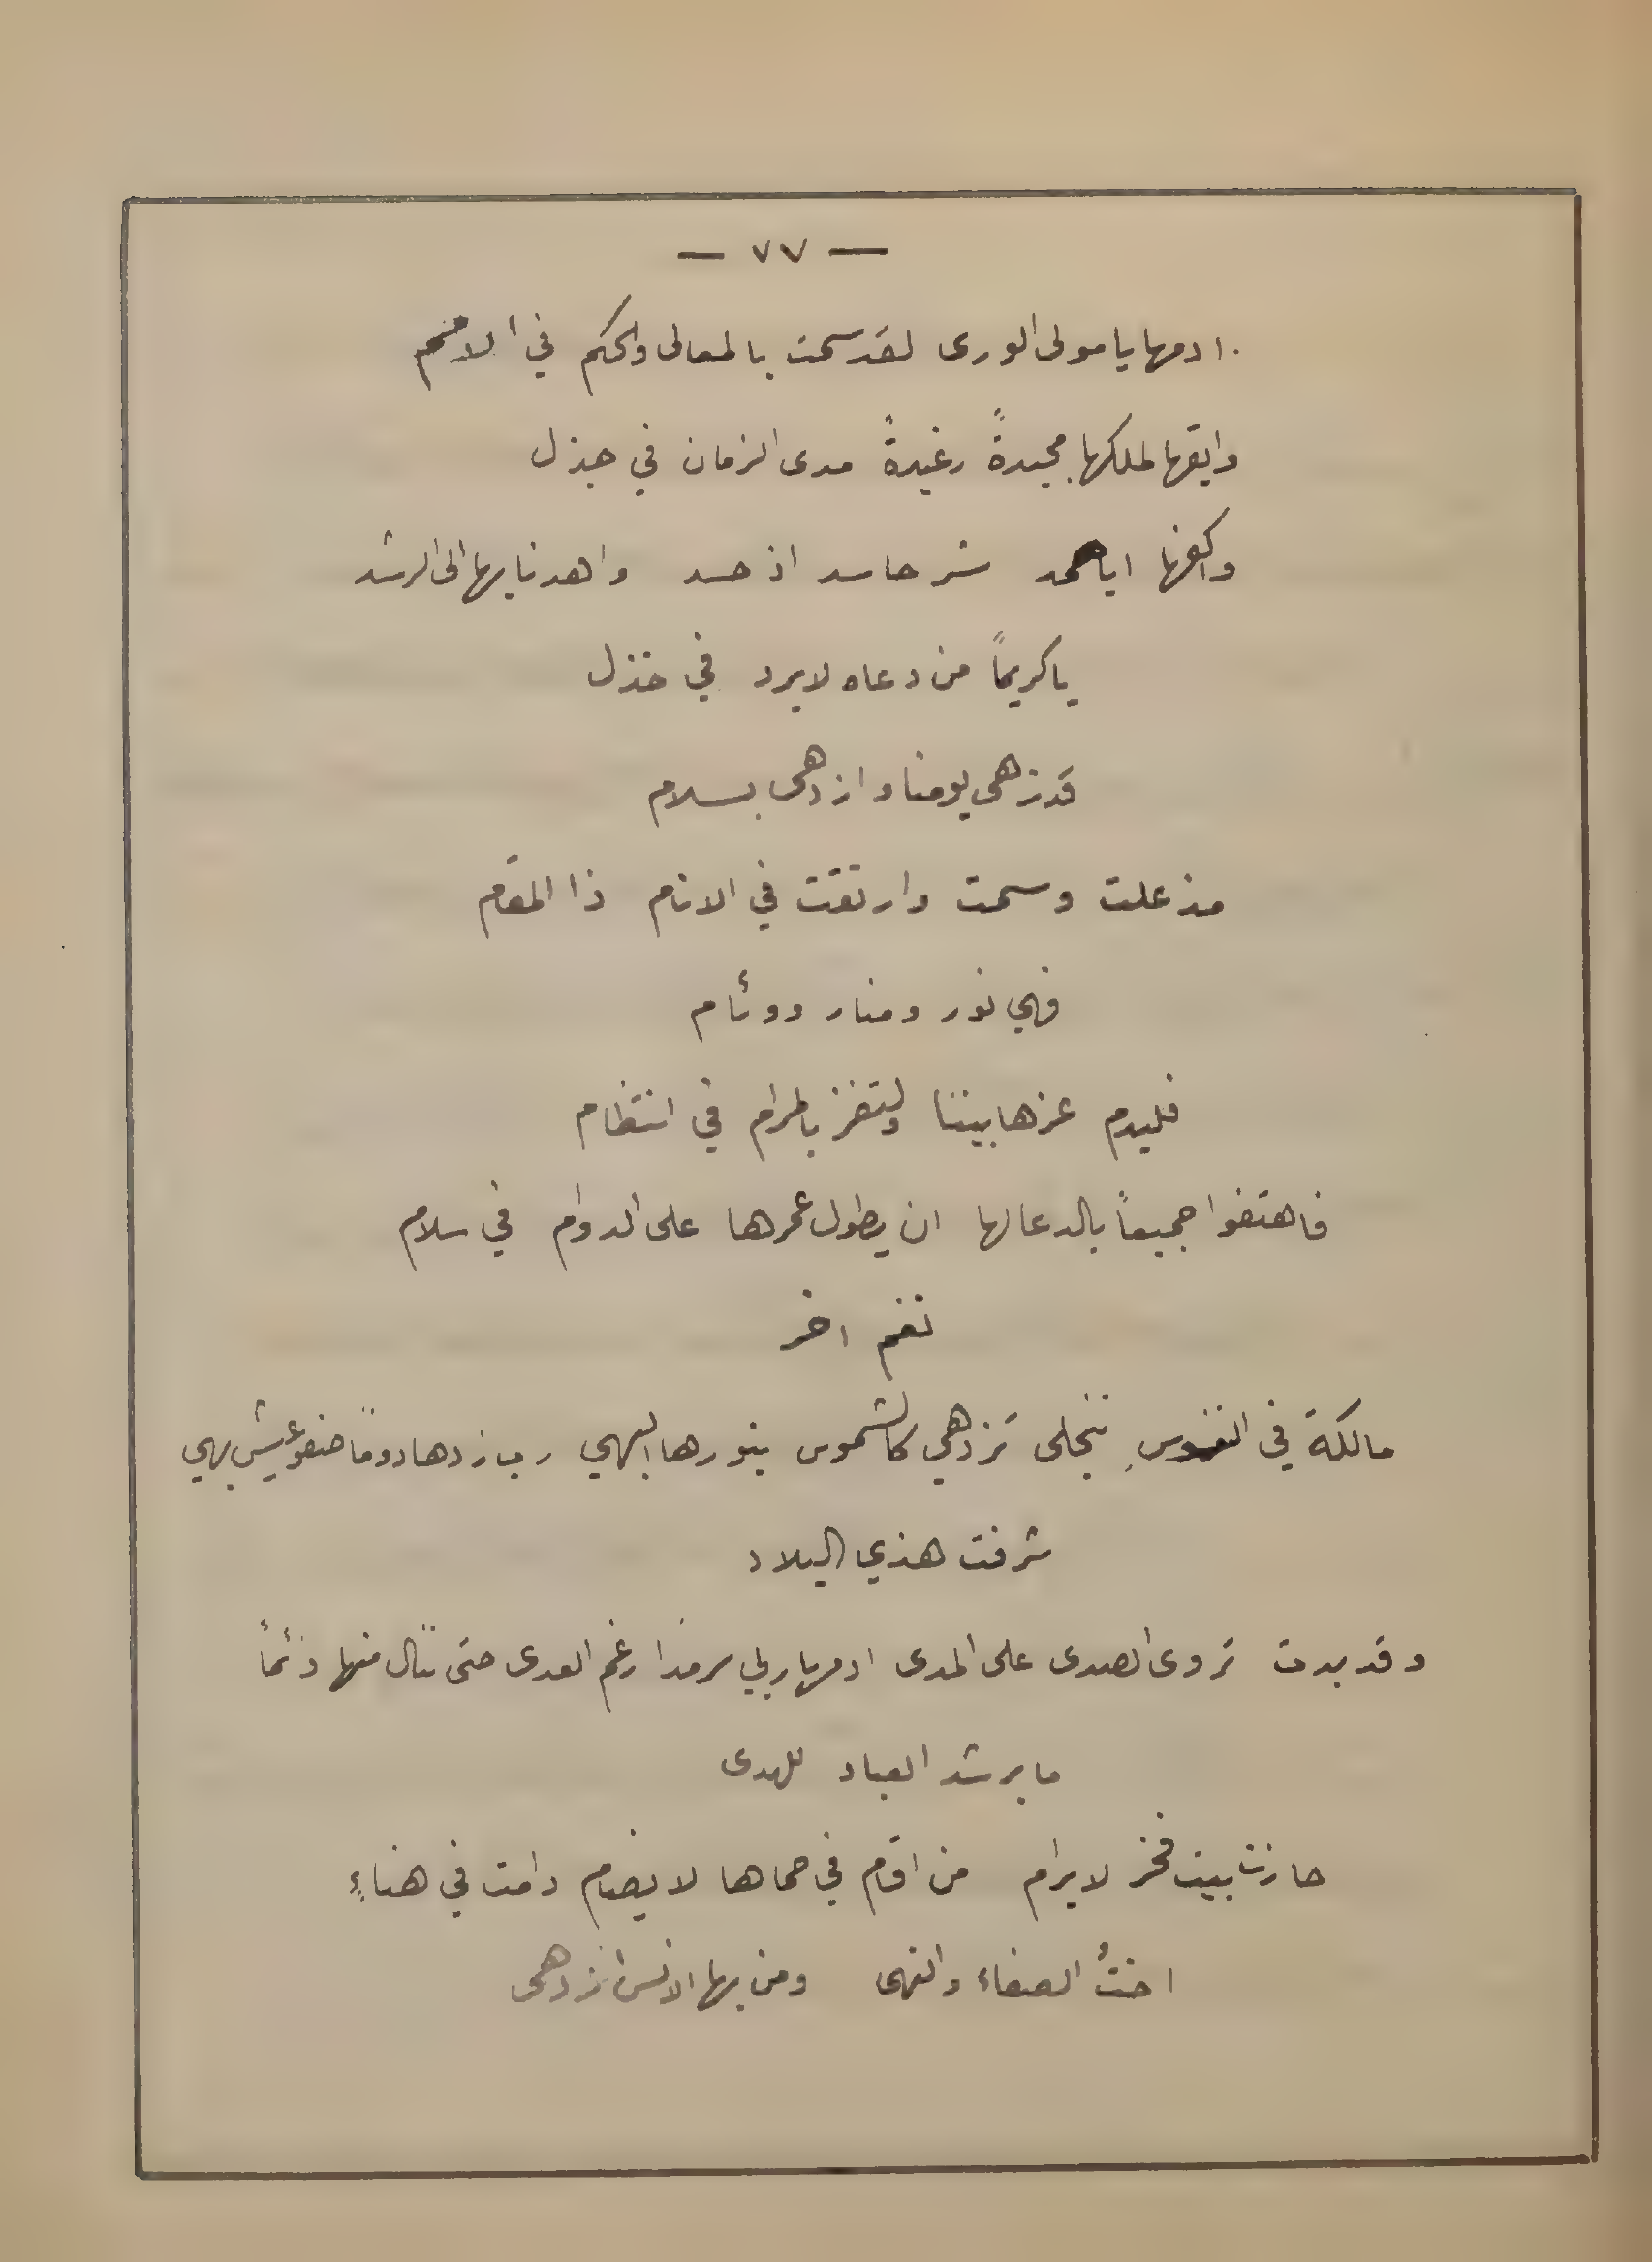 — ٧٧ —
ادمها يا مولى الورى لقد سمت بالمعالى والحكم في الامم
وابقها لملكها مجيدةً رغيدةً مدى الزمان في جذل
واكفها ايا شر حاسد اذ حسد واهدنا بها الى الرشد
يا كريماً من دعاه لا يرد في خذل
قد زهى يومنا وازدهى بسلام
مذ علت وسمت وارتقت في الانام ذا المقام
فهي نور ومنار ووئام
فليدم عزها بيننا ولتفز بالمرام في انتظام
فاهتفوا جميعاً بالدعا لها ان يطول عمرها على الدوام في سلام
نغم اخر
مالكة في النفوسِ تنجلى تزدهي كالشموس بنورها البهي رب زدها دوماً صفو عيش بهي
شرفت هذي البلاد
وقد بدت تروى الصدى على المدى ادمها ربي سرمدا رغم العدى حتى ننال منها دئماً
ما يرشد العباد للهدى
حازت بيت فخر لا يرام من اقام في حماها لا يضام دامت في هناءٍ
اختُ الصفاء والنهى ومن بها الانس ازدهى